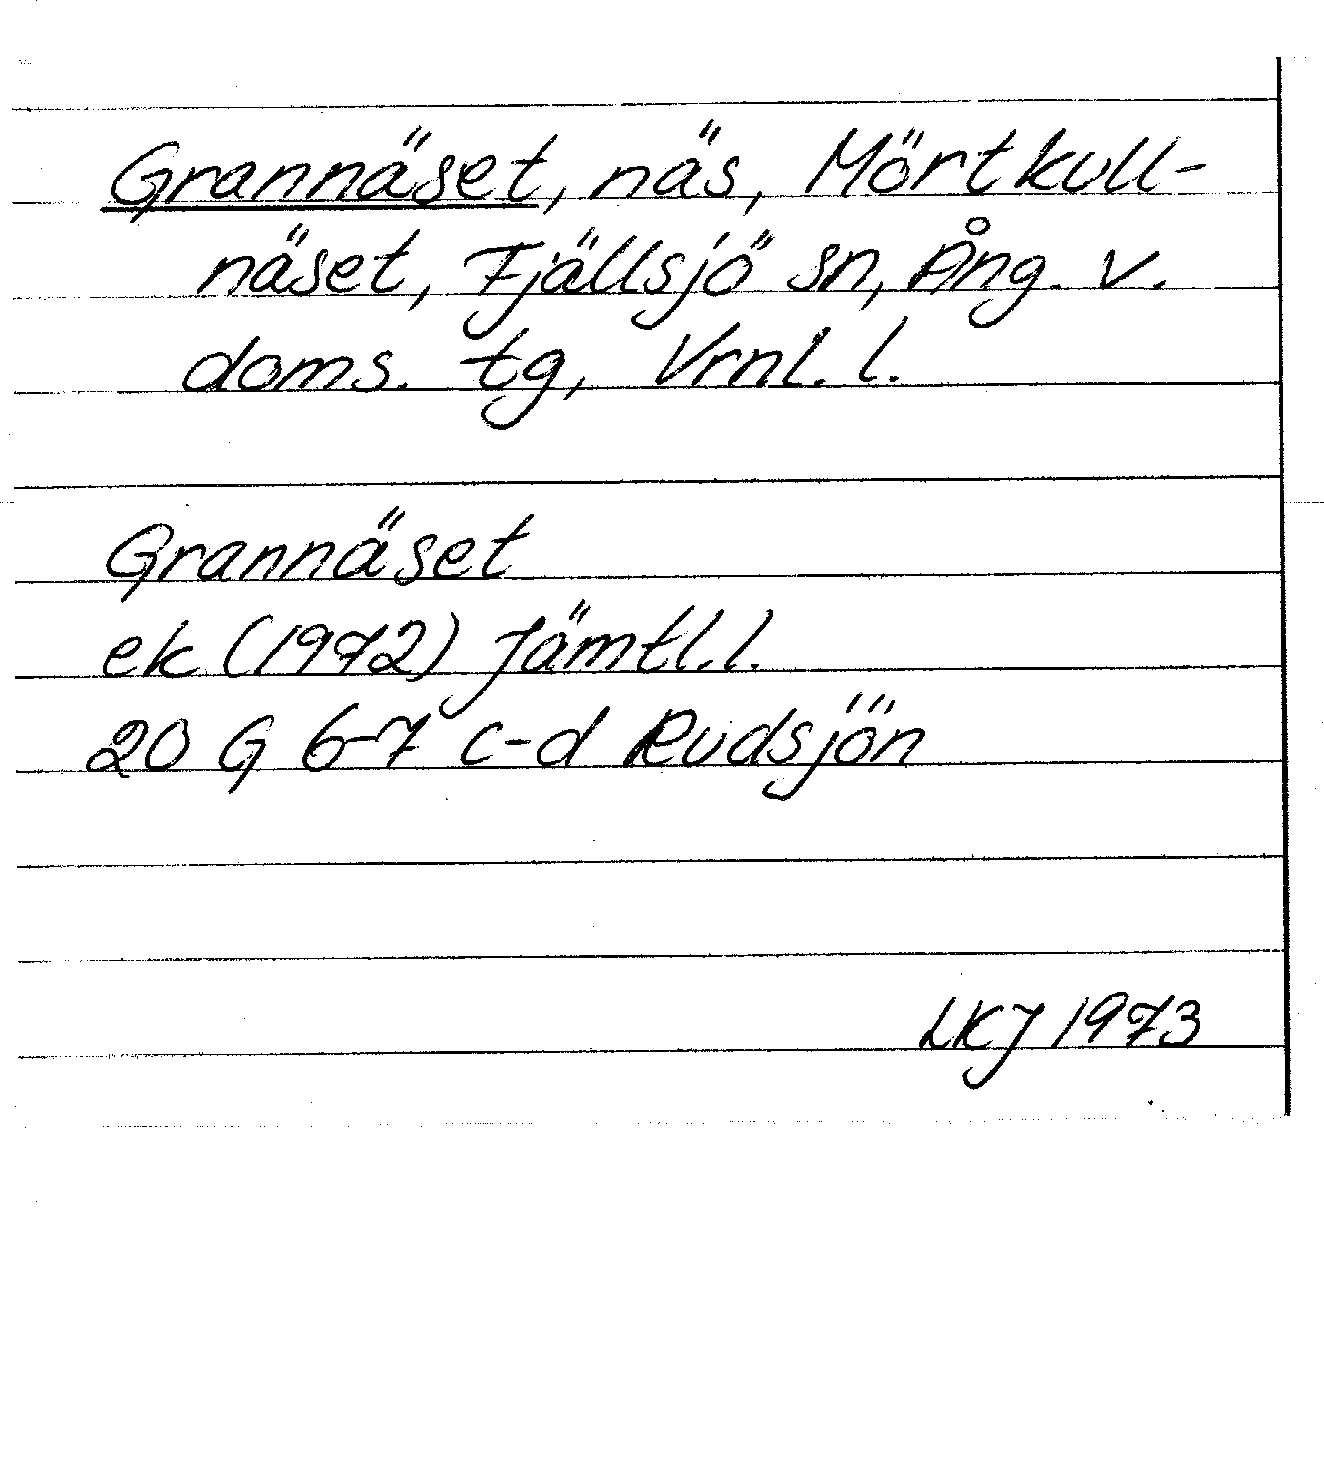 Grannäset, näs, Mörtkull-
näset, Fjällsjö sn, Ång. v.
doms. tg, Vrnl. l.
Grannäset
ek (1972) Jämtl. l.
20 G 6-7 c-d Rudsjön
LKJ 1973